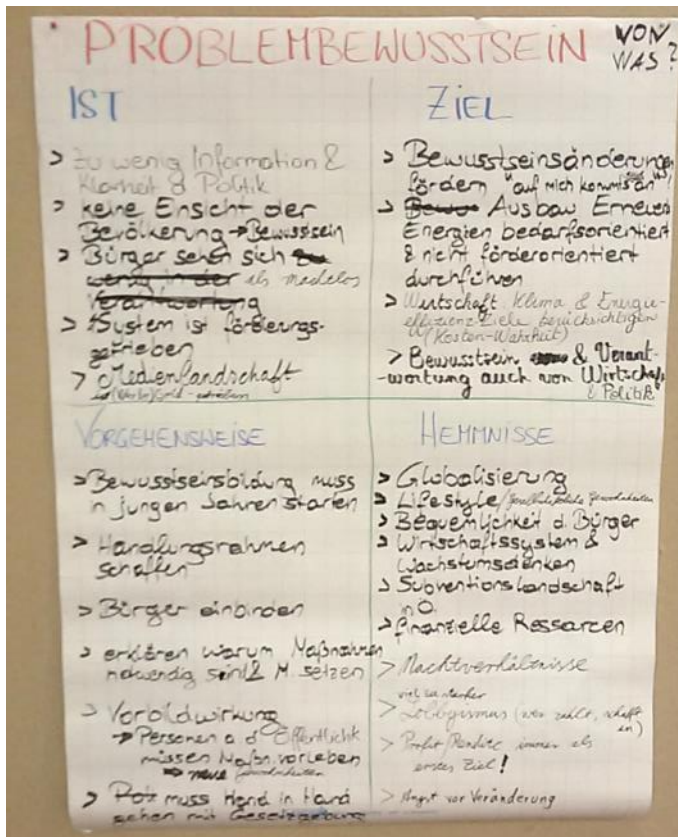 PROBLEMBEWUSSTSEIN
VON
WAS?
IST
> Zu wenig Information &
Klarheit d Politik
> keine Einsicht der
Bevölkerung → Bewusstsein
> Bürger sehen sich
wenig in der als machtlos
Verantwortung
> System ist förderungs-
getrieben
> Medienlandschaft
ist (Werbe)Geld-getrieben
ZIEL
> Bewusstseinsänderungen
fördern "auf mich kommts an"!
> Ausbau Erneuer
Energien bedarfsorientiert
& nicht förderorientiert
durchführen
> Wirtschaft Klima & Energie-
effizienz-Ziele berücksichtigen
(Kosten-Wahrheit)
> Bewusstsein & Verant-
-wortung auch von Wirtschaft
& Politik
VORGEHENSWEISE
> Bewusstseinsbildung muss
in jungen Jahren starten
> Handlungsrahmen
schaffen
> Bürger einbinden
> erklären warum Maßnahmen
notwendig sind & M. setzen
> Vorbildwirkung
→ Personen a d Öffentlichk
müssen Maßn. vorleben
⇒ neue Gewohnheiten
> muss Hand in Hand
gehen mit Gesetzgebung
HEMMNISSE
> Globalisierung
> Lifestyle/gesellschaftliche Gewohnheiten
> Bequemlichkeit d. Bürger
> Wirtschaftssystem &
Wachstumsdenken
> Subventionslandschaft
in Ö.
> finanzielle Ressourcen
> Machtverhältnisse
viel zu starker
> Lobbyismus (wer zahlt, schafft
an)
> Profit/Rendite immer als
erstes Ziel!
> Angst vor Veränderung